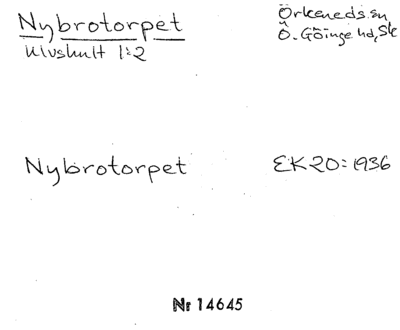 Nybrotorpet
Klvshult 1:2
Örkeneds sn
Ö. Göinge hd, Sk
Nybrotorpet
EK20=1936
Nr 14645